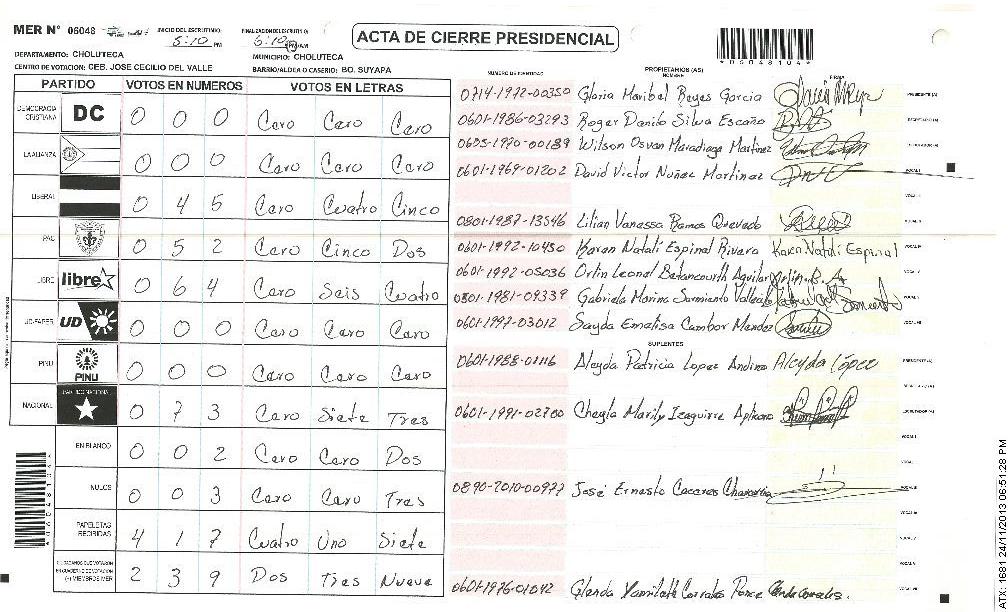 MER N° 06048 INICIO DEL ESCRUTINIO 5:10 PM FINALIZACION DEL ESCRUTINIO 6:10 PM/AM ACTA DE CIERRE PRESIDENCIAL *06048104*
DEPARTAMENTO: CHOLUTECA MUNICIPIO: CHOLUTECA
CENTRO DE VOTACION: CEB. JOSE CECILIO DEL VALLE BARRIO/ALDEA O CASERIO: BO. SUYAPA
PARTIDO VOTOS EN NUMEROS VOTOS EN LETRAS
DEMOCRACIA CRISTIANA DC 0 0 0 Cero Cero Cero
LA ALIANZA 0 0 0 Cero Cero Cero
LIBERAL 0 4 5 Cero Cuatro Cinco
PAC 0 5 2 Cero Cinco Dos
LIBRE libre 0 6 4 Cero Seis Cuatro
UD-FAPER UD 0 0 0 Cero Cero Cero
PINU PINU 0 0 0 Cero Cero Cero
NACIONAL 0 7 3 Cero Siete Tres
EN BLANCO 0 0 2 Cero Cero Dos
NULOS 0 0 3 Cero Cero Tres
PAPELETAS RECIBIDAS 4 1 7 Cuatro Uno Siete
CIUDADANOS QUE VOTARON EN CUADERNO DE VOTACION (+) MIEMBROS MER 2 3 9 Dos Tres Nueve
NUMERO DE IDENTIDAD PROPIETARIOS (AS) NOMBRE FIRMA
0714-1972-00350 Gloria Maribel Reyes Garcia PRESIDENTE (A)
0601-1986-03293 Roger Danilo Silva Escaño SECRETARIO (A)
Wilson Osvan Maradiaga Martinez ESCRUTADOR (A)
0601-1969-01202 David Victor Nuñez Martinez VOCAL I
VOCAL II
0801-1987-13546 Lilian Vanessa Ramos Quevedo VOCAL III
0601-1992-10450 Karen Natalí Espinal Rivera Karen Natalí Espinal VOCAL IV
0601-1992-05036 Orlin Leonel Betancourth Aguilar VOCAL V
0801-1981-09339 Gabriela Marina Sarmiento VOCAL VI
0601-1997-03012 Sayda Ematisa Mendez VOCAL VII
SUPLENTES
0601-1988-01116 Aleyda Patricia Lopez Andino Aleyda López PRESIDENTE (A)
SECRETARIO (A)
0601-1991-02700 Cheyla Marily Izaguirre ESCRUTADOR (A)
VOCAL I
VOCAL II
0890-2010-00977 José Ernesto Caceres VOCAL III
VOCAL IV
VOCAL V
VOCAL VI
0601-1976-01042 Glenda Yamileth Corrales Ponce Glenda Corrales. VOCAL VII
ATX: 1681 24/11/2013 06:51:28 PM